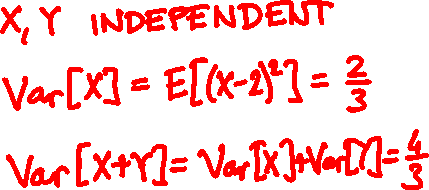 X, Y INDEPENDENT
Var[X] = E[(X-2)²] = 2/3
Var[X+Y] = Var[X]+Var[Y] = 4/3